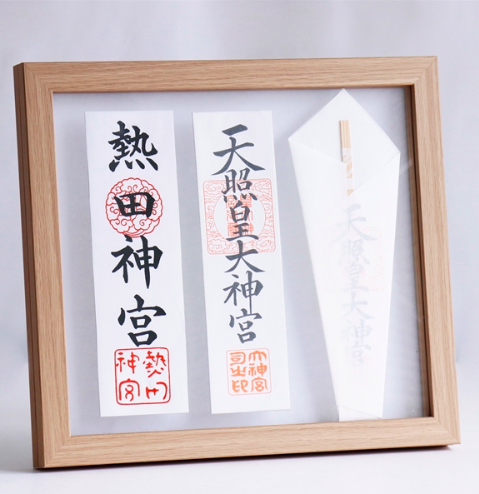 熱田神宮
熱田
神宮
天照皇大神宮
大神宮
司之印
天照皇大神宮